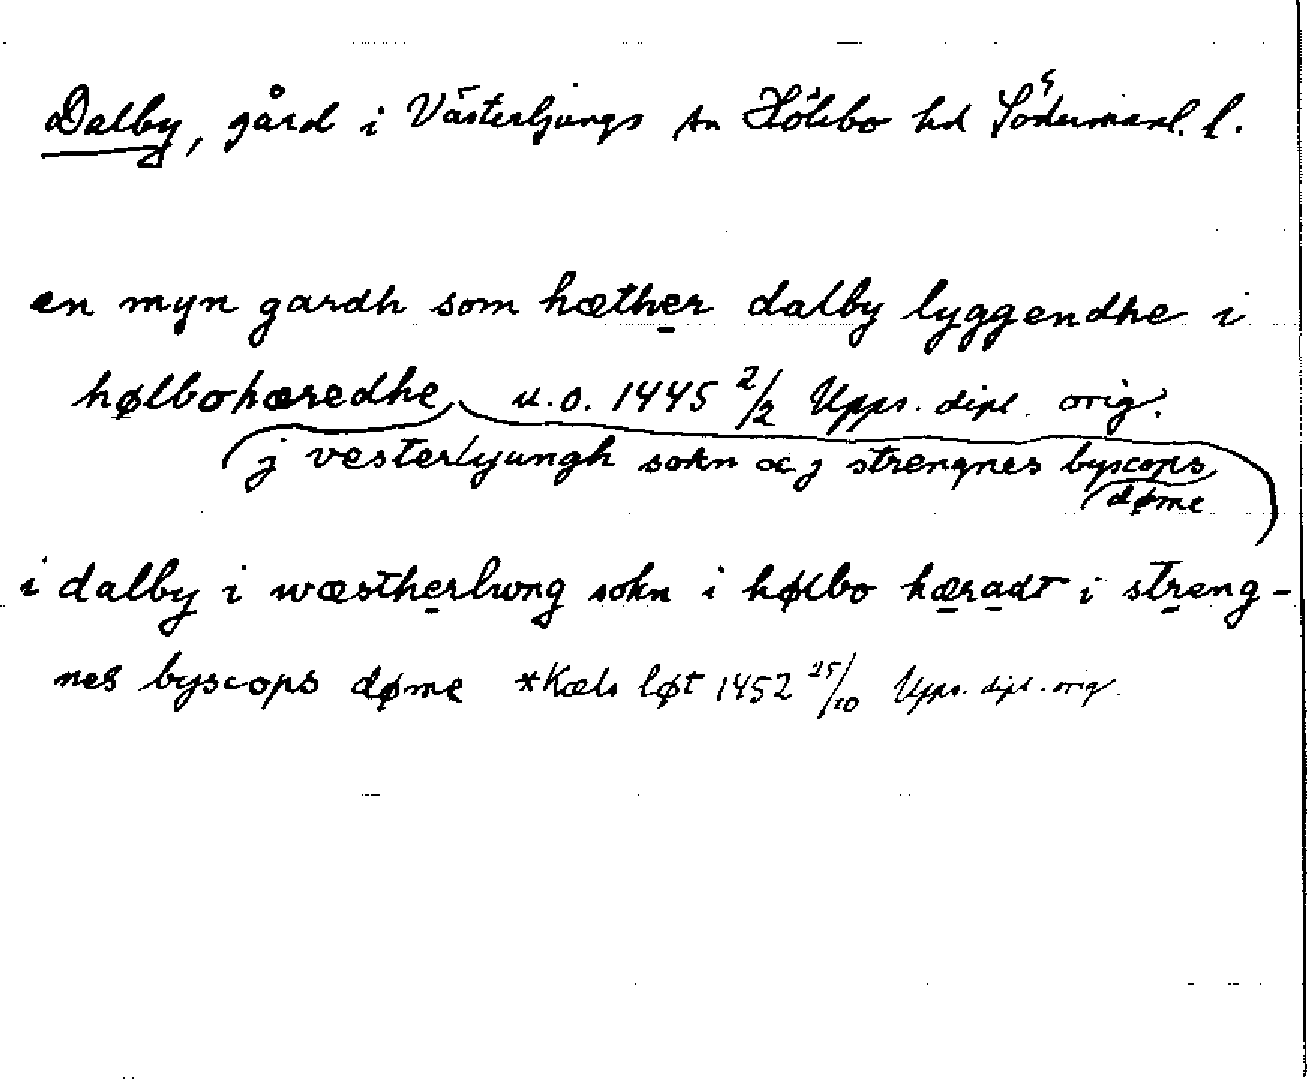 Dalby, gård i Västerljungs sn Hölebo hd Södermanl. l.
en myn gardh som hæther dalby lyggendhe i
hølbohæredhe u.o. 1445 2/2 Upps. dipl. orig.
j vesterljungh sokn oc j strengnes byscops
døme
i dalby i wæstherlwng sokn i hølbo hæradt i streng-
nes byscops døme *Kæls løt 1452 25/10 Upps. dipl. orig.